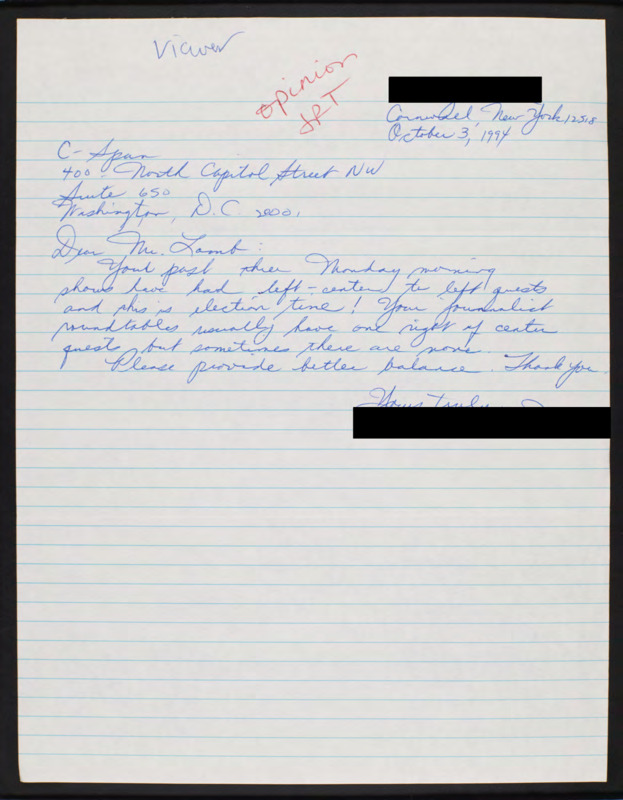 Viewer
opinion
JPT
Cornwall, New York 12518
October 3, 1994
C-Span
400 North Capitol Street NW
Suite 650
Washington, D.C. 20001
Dear Mr. Lamb:
Your past three Monday morning
shows have had left-center to left guests
and this is election time! Your journalist
roundtables usually have one right of center
guest, but sometimes there are none.
Please provide better balance. Thank you.
Yours truly,